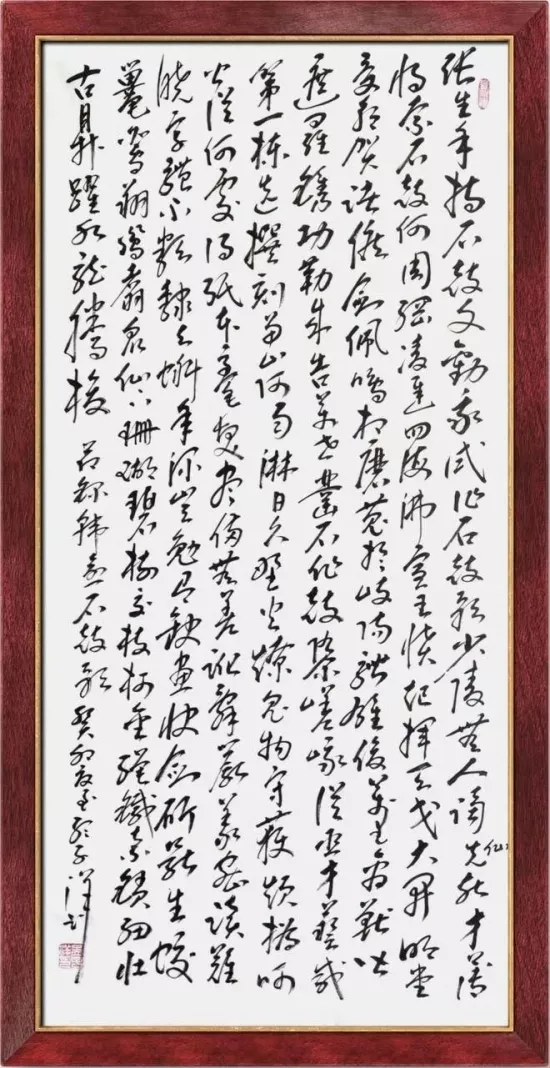 張生手持石鼓文勸我試作石鼓歌少陵無人謫仙死才薄
將奈石鼓何周綱凌遲四海沸宣王憤起揮天戈大開明堂
受朝賀諸侯劍佩鳴相磨蒐於岐陽騁雄俊萬里禽獸皆
遮羅鐫功勒成告萬世鑿石作鼓隳嵯峨從臣才藝咸
第一揀選撰刻留山阿雨淋日久野火燎鬼物守護煩撝呵
公從何處得紙本毫髮盡備無差訛辭嚴義密讀難
曉字體不類隸與蝌年深豈免有缺畫快劍斫斷生蛟
鼉鸞翔鳳翥眾仙下珊瑚碧樹交枝柯金繩鐵索鎖紐壯
古鼎躍水龍騰梭 節錄韓愈石鼓歌 癸卯夏至